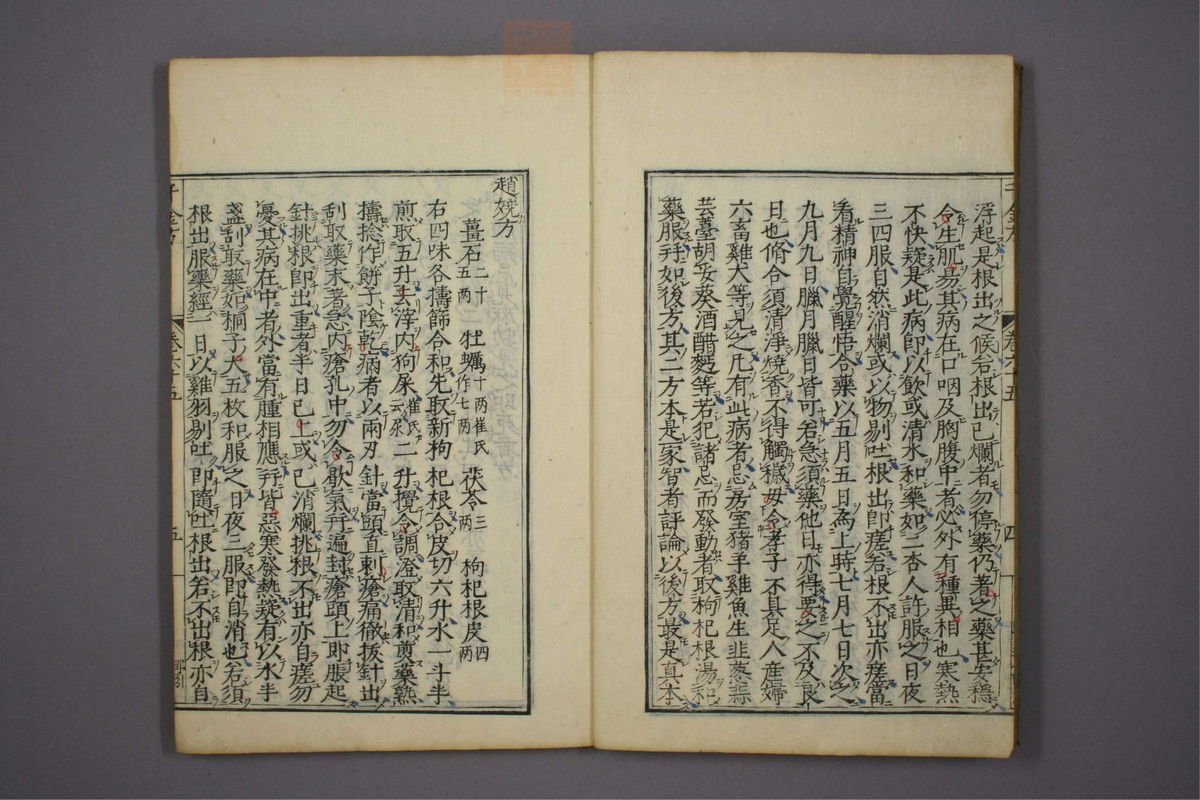 浮起是根出之候若根出已爛者勿停藥仍著之藥甚安穩
令生肌易其病在口咽及胸腹中者必外有種異相也寒熱
不快疑是此病即以飲或清水和藥如二杏人許服之日夜
三四服自然消爛或以物剔吐根出即瘥若根不出亦瘥當
看精神自覺醒悟合藥以五月五日為上時七月七日次之
九月九日臘月臘日皆可若急須藥他日亦得要之不及良
日也脩合須清淨燒香不得觸穢毋令孝子不具足人產婦
六畜雞犬等見之凡有此病者忌房室猪羊雞魚生韭葱蒜
芸薹胡荽葵酒醋麪等若犯諸忌而發動者取枸杞根湯和
藥服并如後方其二方本是一家智者評論以後方最是真本
千金方
卷六十五
四
趙嬈方
薑石二十五兩 牡蠣十兩崔氏作七兩 茯苓三兩 枸杞根皮四兩
右四味各擣篩合和先取新枸杞根合皮切六升水一斗半
煎取五升去滓内狗屎崔氏云尿二升攪令調澄取清和煎藥熟
擣捻作餅子陰乾病者以兩刃針當頭直刺瘡痛徹拔針出
刮取藥末著急内瘡孔中勿令歇氣并遍封瘡頭上即脹起
針挑根即出重者半日已上或已消爛挑根不出亦自瘥勿
憂其病在中者外當有腫相應并皆惡寒發熱疑有以水半
盞刮取藥如桐子大五枚和服之日夜二服即自消也若須
根出服藥經一日以雞羽剔吐即隨吐根出若不出根亦自
千金方
卷六十五
五